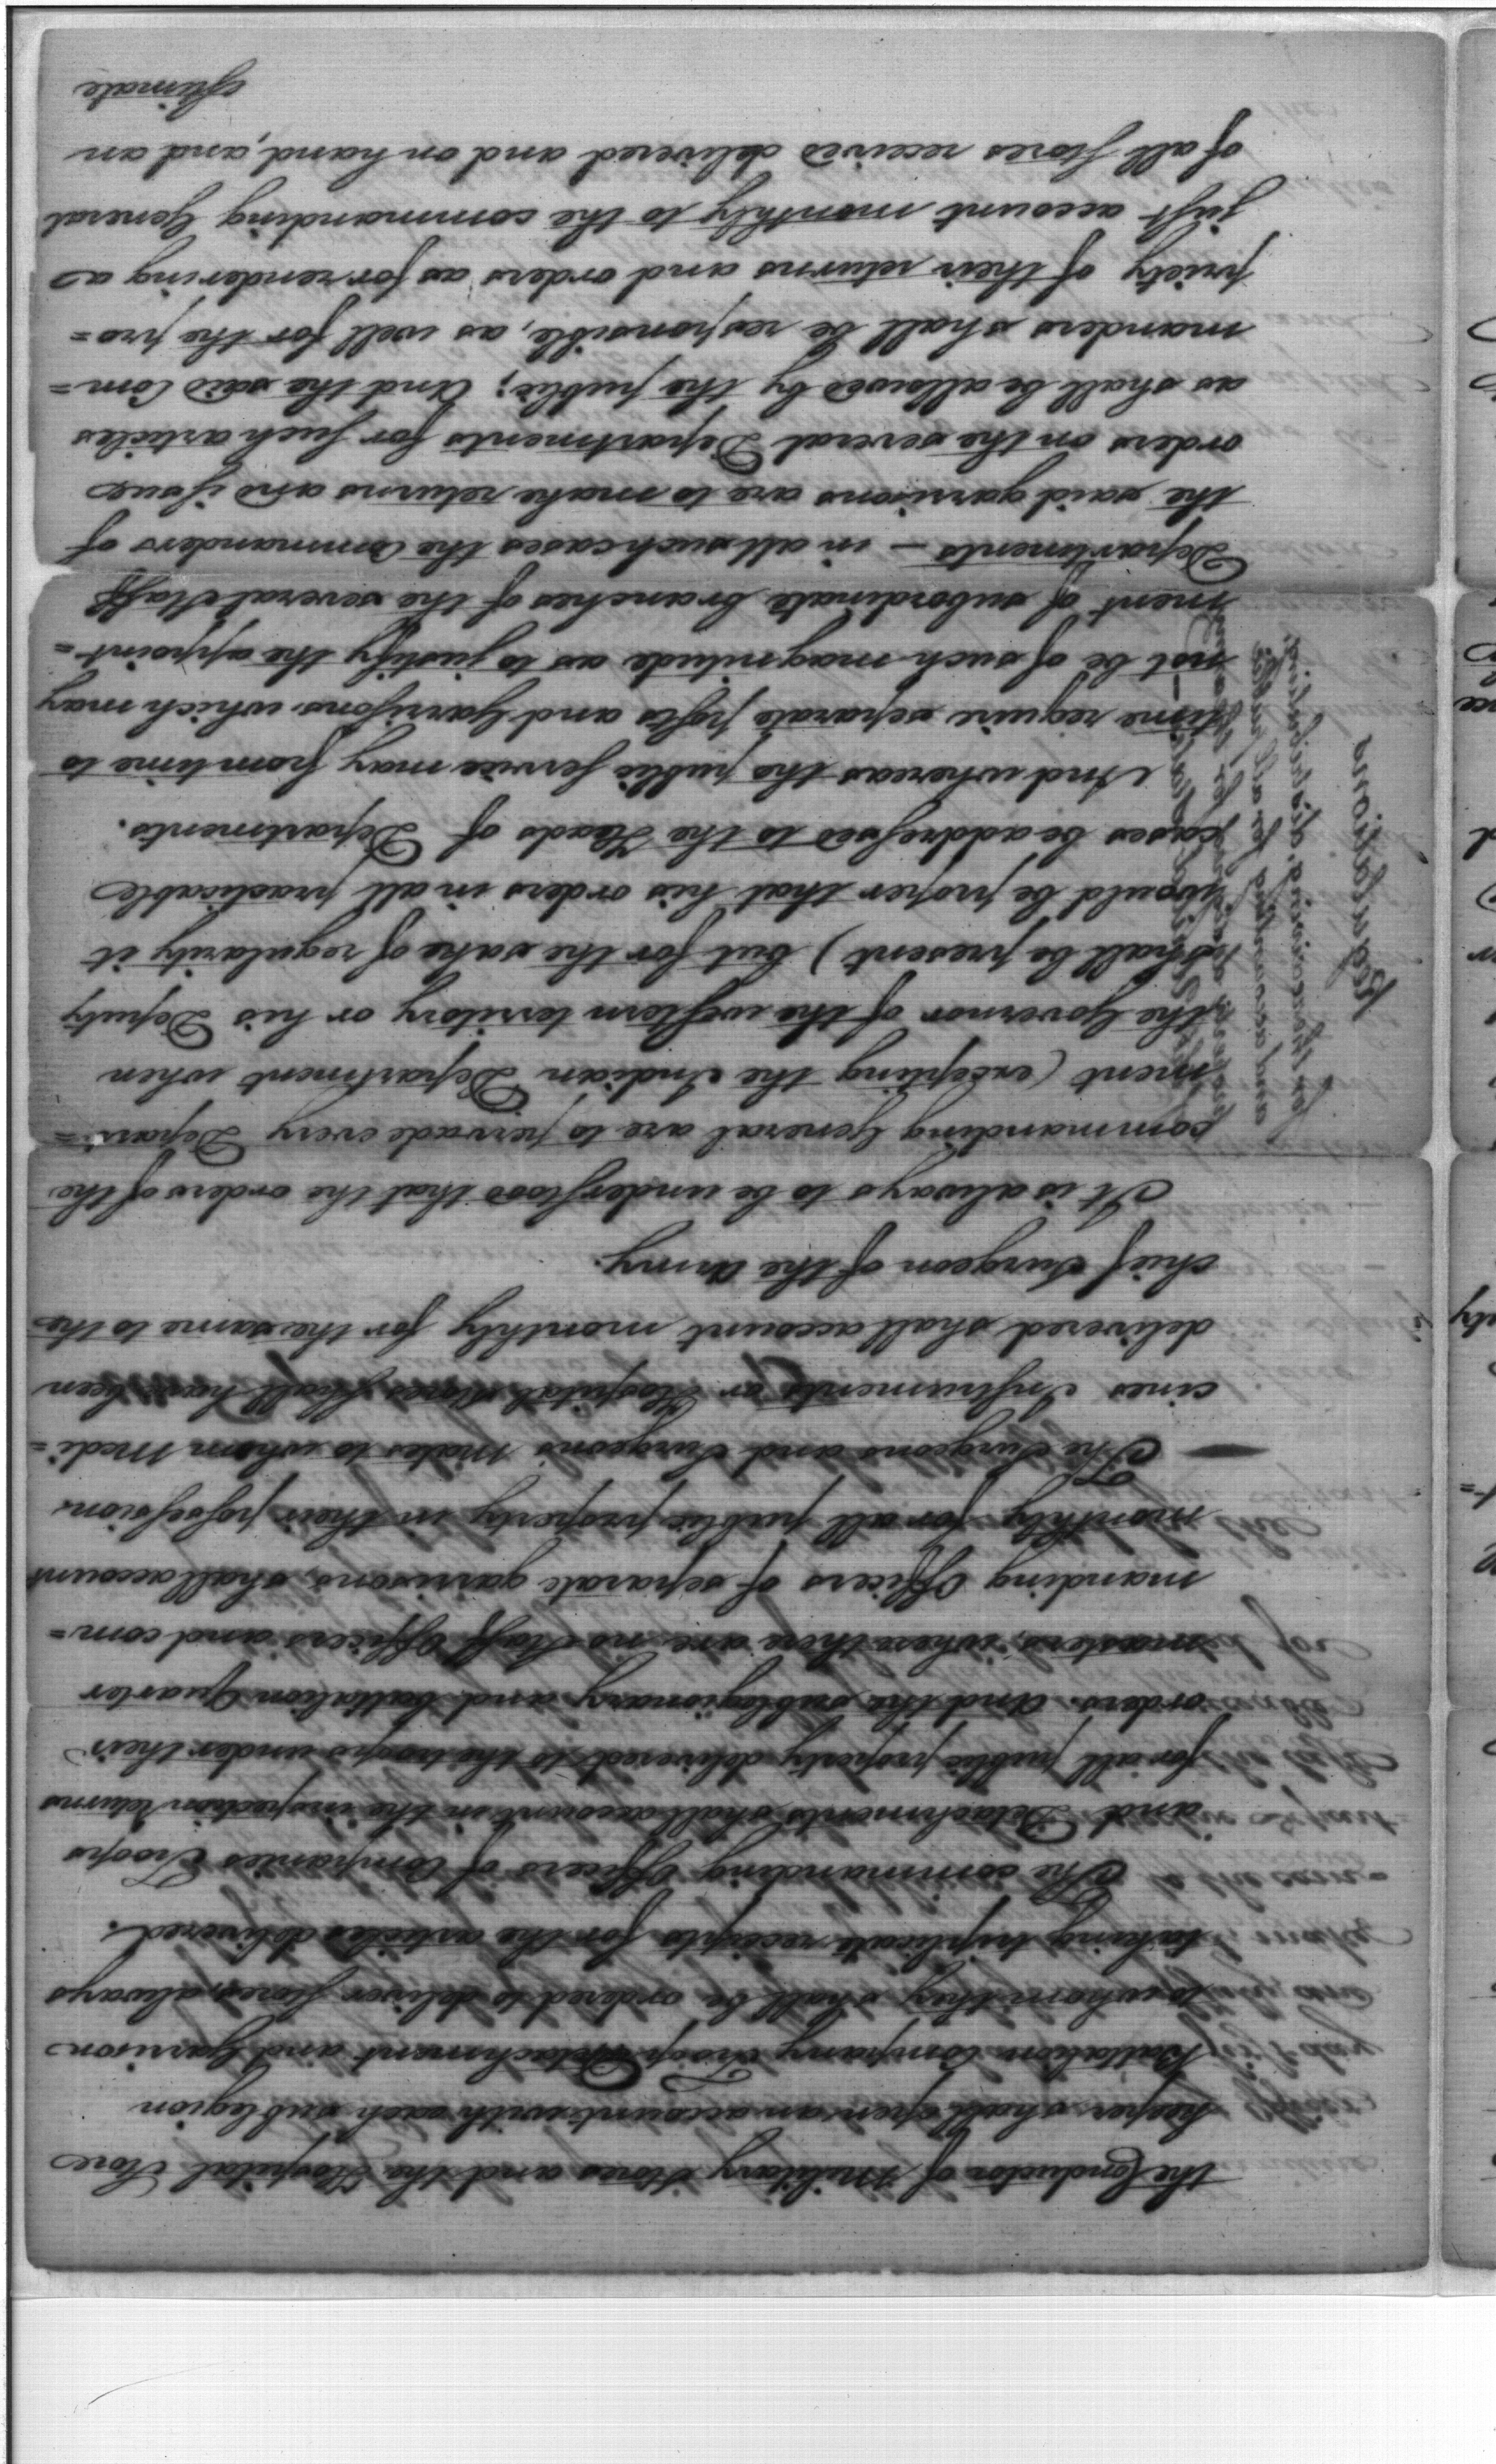 the Conductor of Military Stores and the Hospital Store
keeper shall open an account with each sub legion
Battalion Company Troop Detachment and Garrison
to whom they shall be ordered to deliver stores, always
taking triplicate receipts for the articles delivered.
The commanding Officers of Companies Troops
and Detachments shall account in the inspection returns
for all public property delivered to the troops under their
orders. And the sublegionary and battalion Quarter
masters, where there are no staff Officers and com=
manding Officers of separate garrisons, shall account
monthly for all public property in their possession
The Surgeons and Surgeon's Mates to whom Medi=
cines Instruments or Hospital stores shall have been
delivered shall account monthly for the same to the
chief Surgeon of the Army.
It is always to be understood that the orders of the
commanding General are to pervade every Depart=
ment (excepting the Indian Department when
the Governor of the western territory or his Deputy
shall be present) but for the sake of regularity it
would be proper that his orders in all practicable
cases be addressed to the Heads of Departments.
And whereas the public service may from time to
time require separate posts and Garrisons which may
not be of such magnitude as to justify the appoint=
ment of subordinate branches of the several Staff
Departments — in all such cases the Commanders of
the said garrisons are to make returns and issue
orders on the several Departments for such articles
as shall be allowed by the public; And the said Com=
manders shall be responsible, as well for the pro=
priety of their returns and orders as for rendering a
just account monthly to the commanding General
of all stores received delivered and on hand, and an
estimate
Regulations